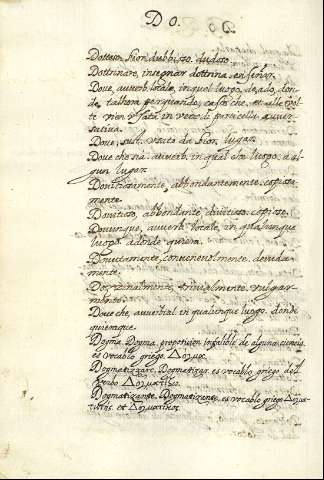 DO.
Dottoso, Fior. dubbioso. dudoso.
Dottrinare, insegnar dottrina. enseñar.
Dove, auverb. locale, in quel luogo, do, ado, don
de. talhora per quando, caso che. et alle vol
te vien usata in vece di particella auver
sativa.
Dove, sust. usato da Fior. lugar.
Dove che sia. auverb. in qual sia luogo. a al
gun lugar.
Dovitiosamente, abbondantemente. copiosa
mente.
Dovitioso, abbondante, divitioso. copioso.
Dovunque, auverb. locale, in qualunque
luogo. adonde quiera.
Dovutamente, convenevolmente. devida
mente.
Dozzinalmente, trivialmente. vulgar
mente.
Dove che, auverbial. in qualunque luogo. donde
quiera que.
Dogma. Dogma. proposicion infalible de alguna ciencia.
es vocablo griego. Δογμα.
Dogmatizzare. Dogmatizar. es vocablo griego del
Δογματίζω.
Dogmatizante. Dogmatizante. es vocablo griego Δογμα
τιστής. et Δογματικος.